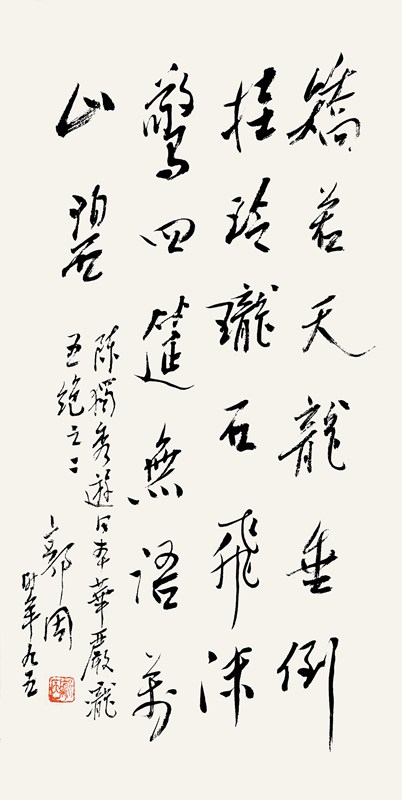 矯若天龍垂倒
挂玲瓏石飛沫
驚四筵無語萬
山碧
陳獨秀遊日本華嚴瀧
五絕之二
郭周
時年九五